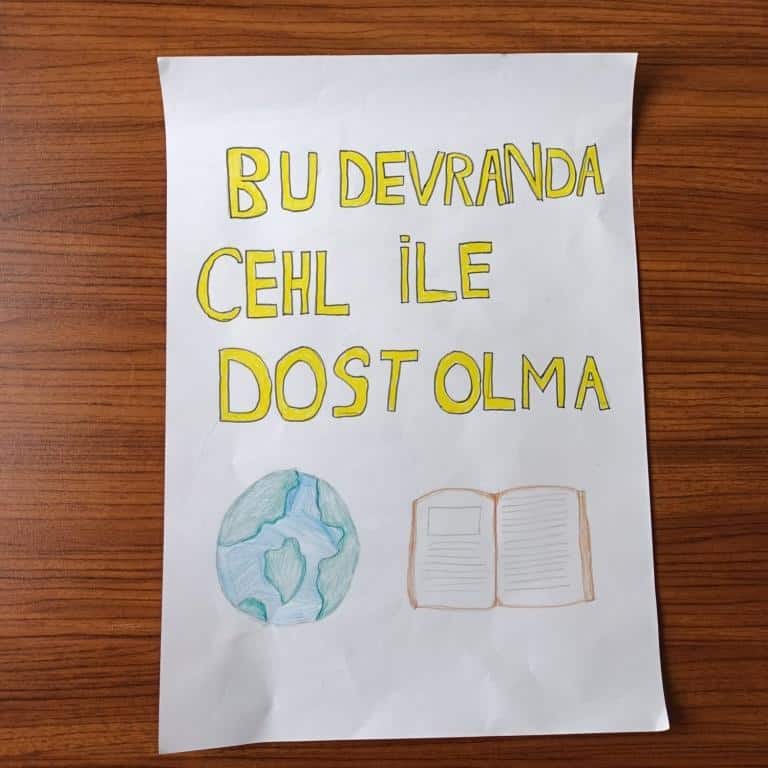 BU DEVRANDA
CEHL İLE
DOST OLMA